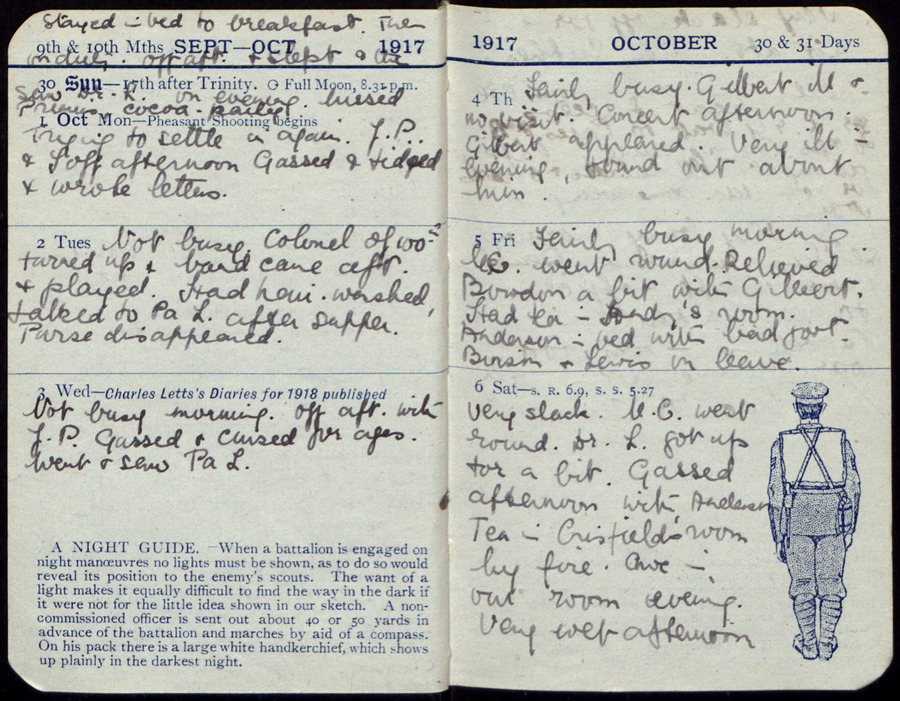 Stayed in bed to breakfast. Then
9th & 10th Mths SEPT—OCT 1917
on duty. off aft. & slept & the
30 Sun—17th after Trinity. Full Moon, 8.31 p.m.
Saw Dr. L. on evening. missed
cocoa
1 Oct Mon—Pheasant Shooting begins
Trying to settle in again. J.P.
& I off afternoon Gassed &
& wrote letters.
2 Tues Not busy. Colonel of 100th
turned up & band came aft.
& played. Had hair washed,
talked to Pa L. after supper.
Purse disappeared.
3 Wed—Charles Letts's Diaries for 1918 published
Not busy morning. off aft. with
J.P. Gassed & cursed for ages.
Went & saw Pa L.
A NIGHT GUIDE.—When a battalion is engaged on
night manœuvres no lights must be shown, as to do so would
reveal its position to the enemy's scouts. The want of a
light makes it equally difficult to find the way in the dark if
it were not for the little idea shown in our sketch. A non-
commissioned officer is sent out about 40 or 50 yards in
advance of the battalion and marches by aid of a compass.
On his pack there is a large white handkerchief, which shows
up plainly in the darkest night.
1917 OCTOBER 30 & 31 Days
4 Th Fairly busy. Gilbert ill &
no visit. Concert afternoon.
Gilbert appeared. Very ill in
evening, found out about
him.
5 Fri Fairly busy morning
went round. Relieved
Bowdon a bit with Gilbert.
Had tea in Andy's room.
Anderson in bed with bad foot.
& Lewis on leave.
6 Sat—S. R. 6.9, S. S. 5.27
Very slack. M.C. went
round. Dr. L. got up
for a bit. Gassed
afternoon with Anderson
Tea in Crisfield's room
by fire. in
our room evening.
Very wet afternoon